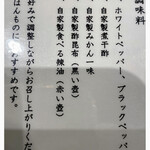 調味料
ホワイトペッパー、ブラックペッパ
自家製煮干酢
自家製みかん一味
自家製酢昆布（黒い壺）
自家製食べる辣油（赤い壺）
好みで調整しながらお召し上がりくだ
はんものにもおすすめです。